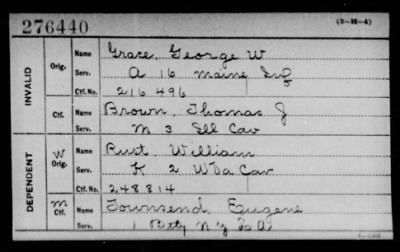 276440
(3-H-4)
INVALID
Orig.
Name
Grace, George W
Serv.
A 16 Maine Inf
Ctf. No.
216 496
Ctf.
Name
Brown, Thomas J
Serv.
M 3 Ill Cav
DEPENDENT
W
Orig.
Name
Rust, William
Serv.
K 2 W Va Cav
Ctf. No.
248814
M
Ctf.
Name
Townsend Eugene
Serv.
1 Batty N.Y.